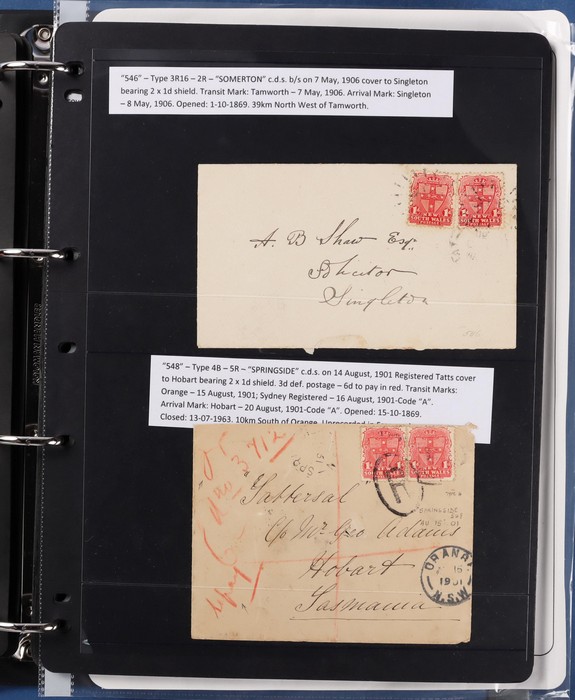 "546" – Type 3R16 – 2R – "SOMERTON" c.d.s. b/s on 7 May, 1906 cover to Singleton
bearing 2 x 1d shield. Transit Mark: Tamworth – 7 May, 1906. Arrival Mark: Singleton
– 8 May, 1906. Opened: 1-10-1869. 39km North West of Tamworth.
NEW
SOUTH WALES
NEW
SOUTH WALES
A. B Shaw Esqr
Solicitor
Singleton
"548" – Type 4B – 5R – "SPRINGSIDE" c.d.s. on 14 August, 1901 Registered Tatts cover
to Hobart bearing 2 x 1d shield. 3d def. postage – 6d to pay in red. Transit Marks:
Orange – 15 August, 1901; Sydney Registered – 16 August, 1901-Code "A".
Arrival Mark: Hobart – 20 August, 1901-Code "A". Opened: 15-10-1869.
Closed: 13-07-1963. 10km South of Orange.
SOUTH WALES
SOUTH WALES
R
Tattersal
C/o Mr Geo Adams
Hobart
Tasmania
SPRINGSIDE
ORANGE
1901
N.S.W